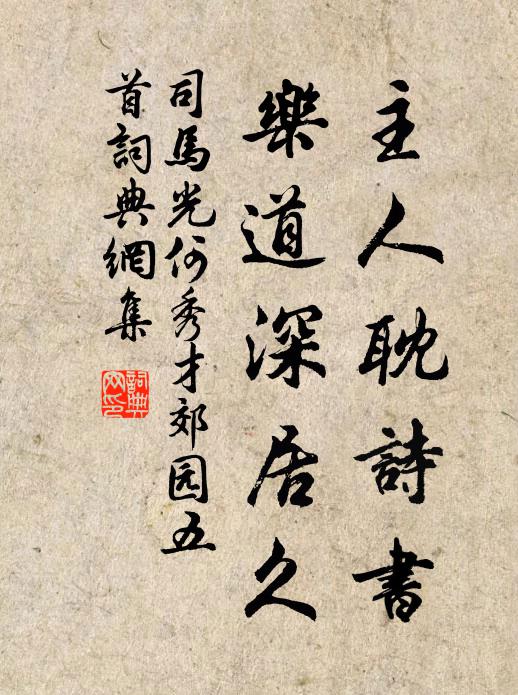 主人耽詩書
樂道深居久
司馬光何秀才郊园五
首詞典網集
詞典
网印